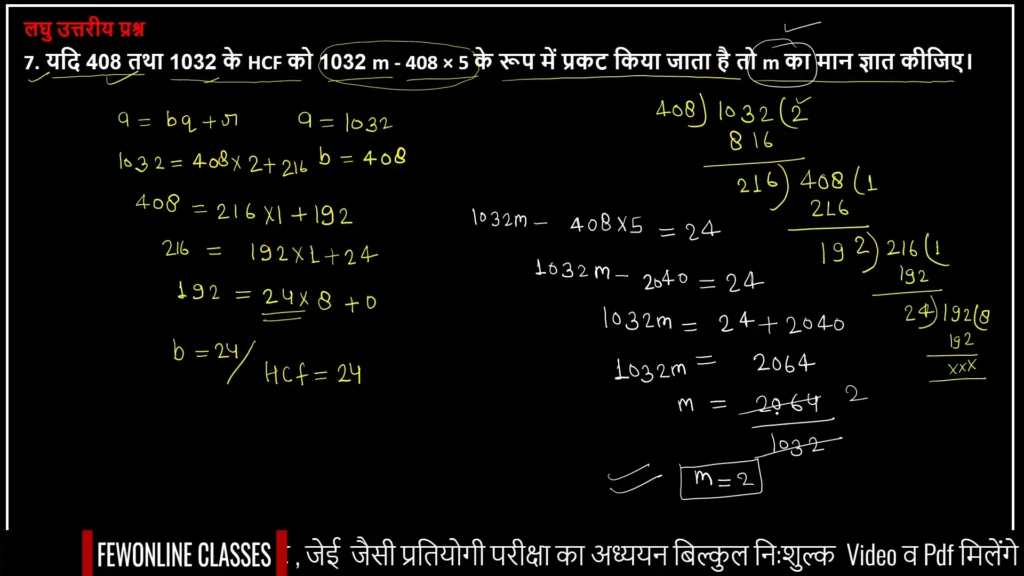 लघु उत्तरीय प्रश्न
7. यदि 408 तथा 1032 के HCF को 1032 m - 408 × 5 के रूप में प्रकट किया जाता है तो m का मान ज्ञात कीजिए।
a = bq + r a = 1032
1032 = 408 × 2 + 216 b = 408
408 = 216 × 1 + 192
216 = 192 × 1 + 24
192 = 24 × 8 + 0
b = 24 / HCf = 24
408 ) 1032 ( 2
816
216 ) 408 ( 1
216
192 ) 216 ( 1
192
24 ) 192 ( 8
192
xxx
1032m - 408 × 5 = 24
1032m - 2040 = 24
1032m = 24 + 2040
1032m = 2064
m = 2064 2
1032
m = 2
FEWONLINE CLASSES , जेईई जैसी प्रतियोगी परीक्षा का अध्ययन बिल्कुल निःशुल्क Video व Pdf मिलेंगे